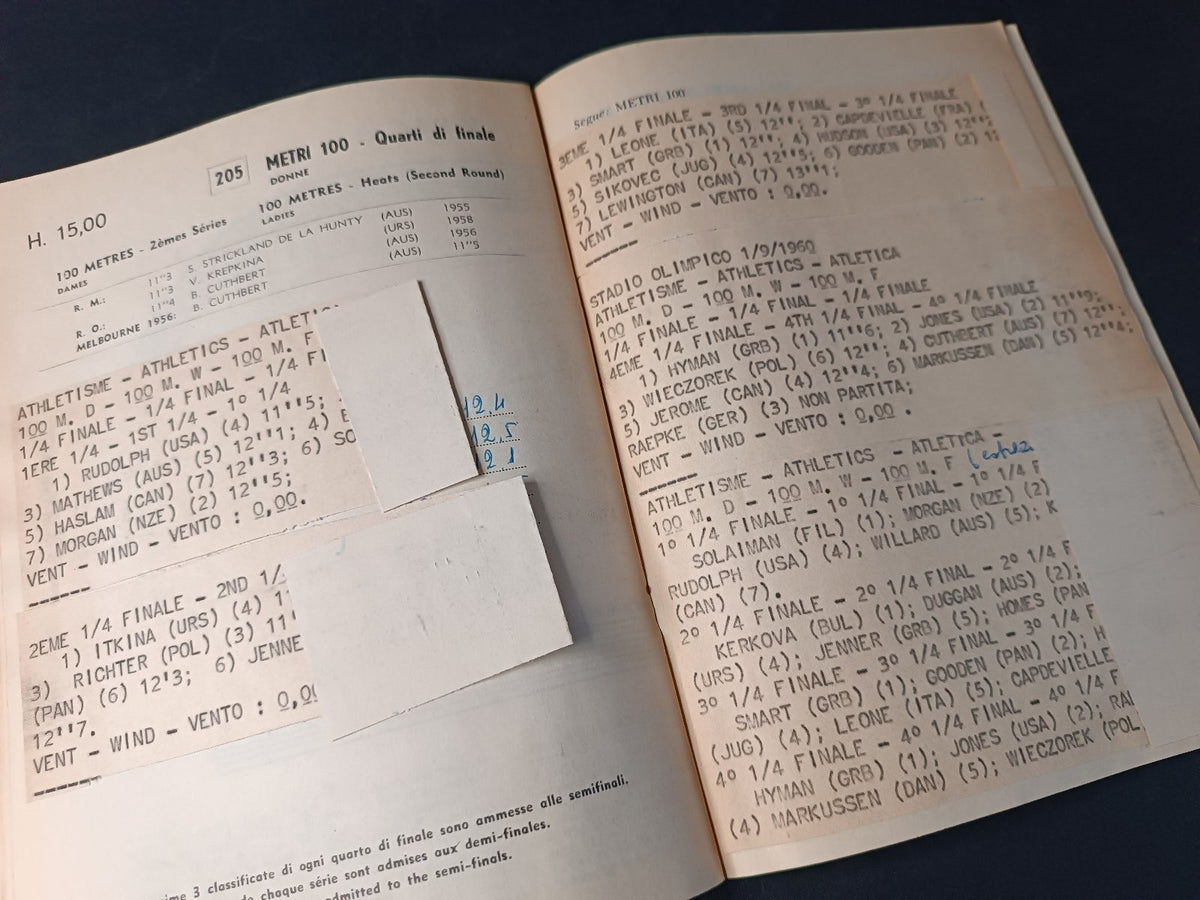 205
METRI 100 - Quarti di finale
DONNE
H. 15,00
100 METRES - 2èmes Séries
DAMES
100 METRES - Heats (Second Round)
LADIES
R. M.: 11"3 S. STRICKLAND DE LA HUNTY (AUS) 1955
11"3 V. KREPKINA (URS) 1958
R. O.: 11"4 B. CUTHBERT (AUS) 1956
MELBOURNE 1956: B. CUTHBERT (AUS) 11"5
ATHLETISME - ATHLETICS - ATLETI
100 M. D - 100 M. W - 100 M. F
1/4 FINALE - 1/4 FINAL - 1/4 FI
1ERE 1/4 - 1ST 1/4 - 1º 1/4
1) RUDOLPH (USA) (4) 11''5;
3) MATHEWS (AUS) (5) 12''1; 4)
5) HASLAM (CAN) (7) 12''3; 6) SC
7) MORGAN (NZE) (2) 12''5;
VENT - WIND - VENTO : 0,00.
12.4
12.5
2 1
2EME 1/4 FINALE - 2ND 1/
1) ITKINA (URS) (4) 1
3) RICHTER (POL) (3) 11'
(PAN) (6) 12'3; 6) JENNE
12''7.
VENT - WIND - VENTO : 0,00
ime 3 classificate di ogni quarto di finale sono ammesse alle semifinali.
de chaque série sont admises aux demi-finales.
admitted to the semi-finals.
Segue: METRI 100
3EME 1/4 FINALE - 3RD 1/4 FINAL - 3º 1/4 FINALE
1) LEONE (ITA) (5) 12''; 2) CAPDEVIELLE (FRA) (
3) SMART (GRB) (1) 12''; 4) HUDSON (USA) (3) 12'';
5) SIKOVEC (JUG) (4) 12''5; 6) GOODEN (PAN) (2) 1
7) LEWINGTON (CAN) (7) 13''1;
VENT - WIND - VENTO : 0,00.
STADIO OLIMPICO 1/9/1960
ATHLETISME - ATHLETICS - ATLETICA
100 M. D - 100 M. W - 100 M. F
1/4 FINALE - 1/4 FINAL - 1/4 FINALE
4EME 1/4 FINALE - 4TH 1/4 FINAL - 4º 1/4 FINALE
1) HYMAN (GRB) (1) 11''6; 2) JONES (USA) (2) 11''9;
3) WIECZOREK (POL) (6) 12''; 4) CUTHBERT (AUS) (7) 12'';
5) JEROME (CAN) (4) 12''4; 6) MARKUSSEN (DAN) (5) 12''4;
RAEPKE (GER) (3) NON PARTITA;
VENT - WIND - VENTO : 0,00 .
ATHLETISME - ATHLETICS - ATLETICA -
100 M. D - 100 M. W - 100 M. F
1º 1/4 FINALE - 1º 1/4 FINAL - 1º 1/4 F
SOLAIMAN (FIL) (1); MORGAN (NZE) (2)
RUDOLPH (USA) (4); WILLARD (AUS) (5); K
(CAN) (7).
2º 1/4 FINALE - 2º 1/4 FINAL - 2º 1/4 F
KERKOVA (BUL) (1); DUGGAN (AUS) (2);
(URS) (4); JENNER (GRB) (5); HOMES (PAN
3º 1/4 FINALE - 3º 1/4 FINAL - 3º 1/4 F
SMART (GRB) (1); GOODEN (PAN) (2); H
(JUG) (4); LEONE (ITA) (5); CAPDEVIELLE
4º 1/4 FINALE - 4º 1/4 FINAL - 4º 1/4 F
HYMAN (GRB) (1); JONES (USA) (2); RA
(4) MARKUSSEN (DAN) (5); WIECZOREK (POL